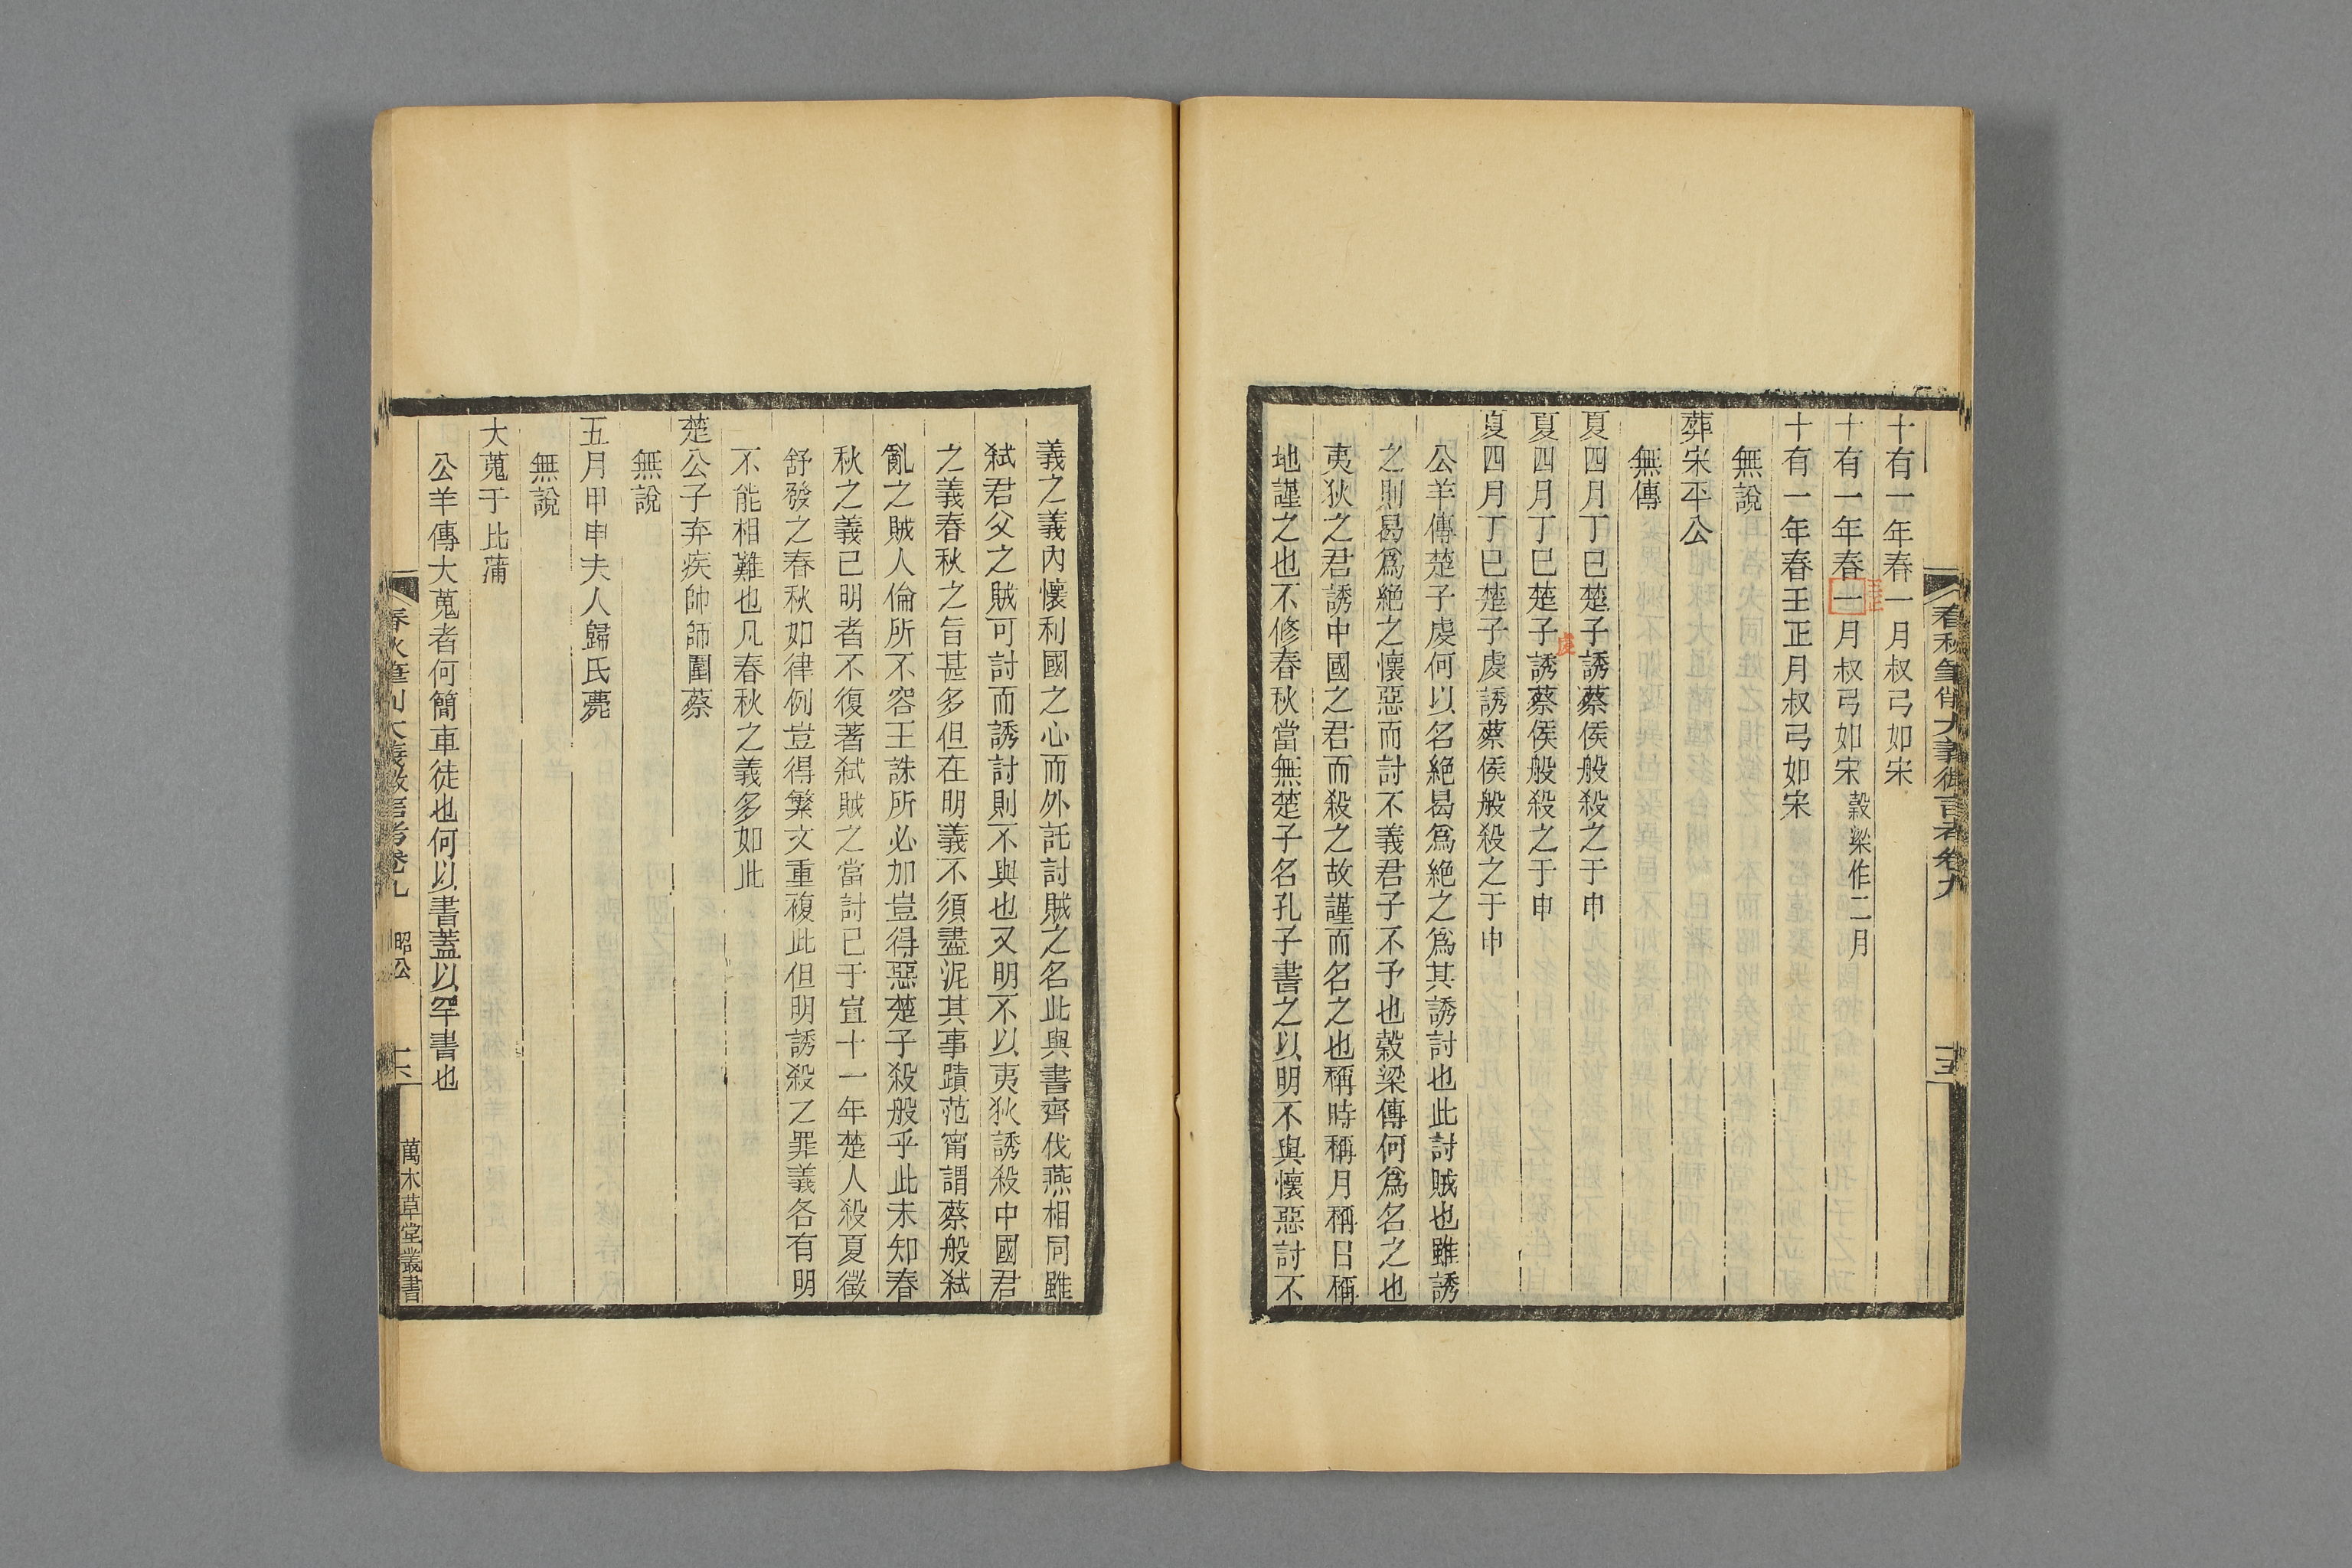 春秋筆削大義微言考卷九
十有一年春一月叔弓如宋
十有一年春一月叔弓如宋穀梁作二月
王正
十有一年春王正月叔弓如宋
無說
葬宋平公
無傳
夏四月丁巳楚子誘蔡侯般殺之于申
虔
夏四月丁巳楚子誘蔡侯般殺之于申
夏四月丁巳楚子虔誘蔡侯般殺之于申
公羊傳楚子虔何以名絕曷爲絕之爲其誘討也此討賊也雖誘
之則曷爲絕之懷惡而討不義君子不予也穀梁傳何爲名之也
夷狄之君誘中國之君而殺之故謹而名之也稱時稱月稱日稱
地謹之也不修春秋當無楚子名孔子書之以明不與懷惡討不
義之義內懷利國之心而外託討賊之名此與書齊伐燕相同雖
弒君父之賊可討而誘討則不與也又明不以夷狄誘殺中國君
之義春秋之旨甚多但在明義不須盡泥其事蹟范甯謂蔡般弒
亂之賊人倫所不容王誅所必加豈得惡楚子殺般乎此未知春
秋之義已明者不復著弒賊之當討已于宣十一年楚人殺夏徵
舒發之春秋如律例豈得繁文重複此但明誘殺之罪義各有明
不能相難也凡春秋之義多如此
楚公子弃疾帥師圍蔡
無說
五月甲申夫人歸氏薨
無說
大蒐于比蒲
公羊傳大蒐者何簡車徒也何以書蓋以罕書也
春秋筆削大義微言考卷九 昭公 十六 萬木草堂叢書